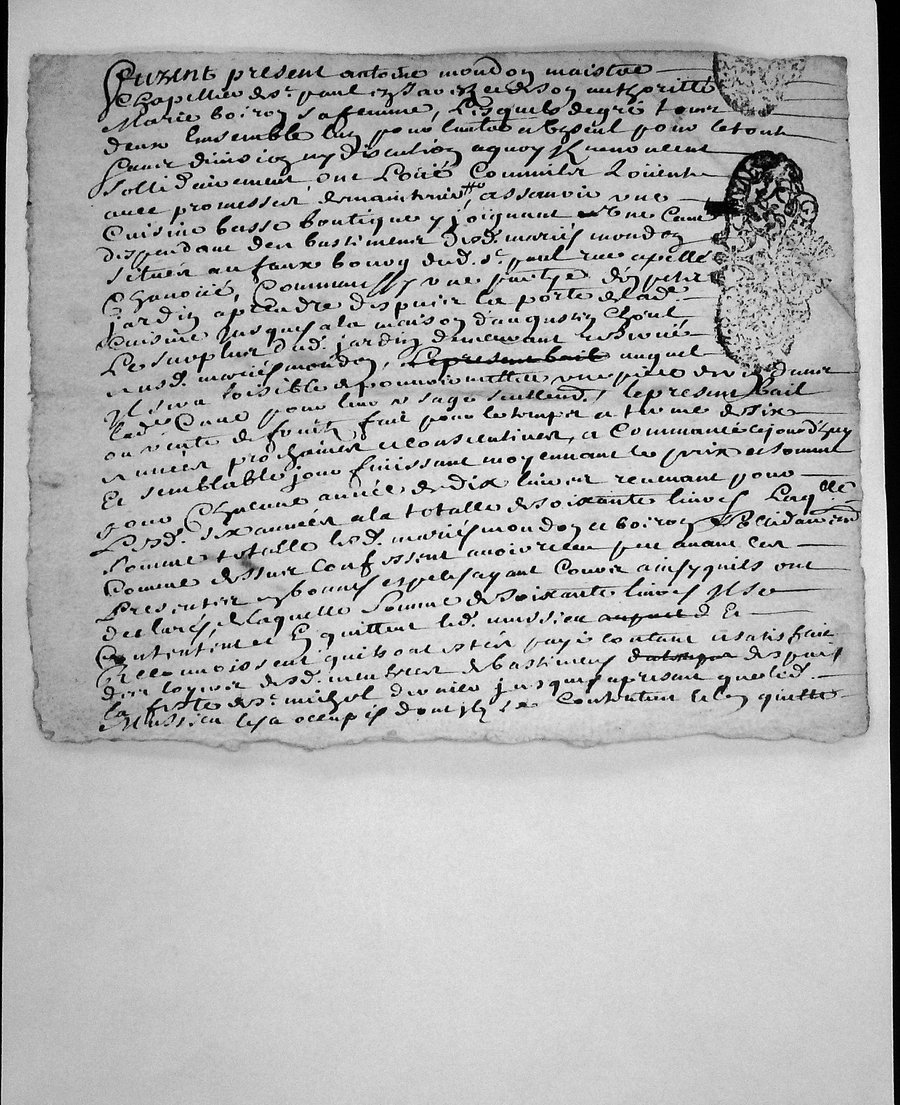 furent present antoine mondon maistre
Chapellier de st. paul en Jarez et de son authoritté
Marie boiron sa femme, Lesquels de gré tous
deux Ensemble lun pour lautre a beseul pour le tout
sans division ny discution aquoy Ils renoncent
sollidairement ont Loüé Commis
avec promesse de maintenir assavoir une
Cuisine basse boutique y joignant une Cave
dependant de bastiment desd. mariés mondon
situés au faux bourg dud. st. paul rue apellé
Comme aussy une partye du petit
jardin aprendre despuis la porte de lad.
Cuisine jusques a la maison daugustin
Le surplus dud. jardin demeurant reservé
ausd. mariés mondon, le present bail auquel
Il sera loisible de pouvoir mettre une piece de vin dans
lad. Cave pour leur usage seullemt, le present Bail
ou vente de fruits fait pour le temps et terme de six
années prochaines et consecutives, a Commancé cejourdhuy
Et semblable jour finissant moyennant le prix et somme
pour Chacune année de dix livres revenant pour
Lesd. six années a la totalle de soixante livres Laqlle
somme totalle lesd. mariés mondon et boiron sollidairemt
Comme dessus Confessent avoir receu peu avant Ces
presentes en bonnes espeses ayant Cours ainsy quils ont
declarés, de laquelle somme de soixante livres Ils se
Contentent et En quittent led. mussieu Et
Reconnoissent quils ont estés payé contant et satisfait
des loyers desd. membres de bastiment despuis
la feste de st. michel dernier jusques a present que led.
Mussieu les a occupés dont ils se Contentent et len quitte